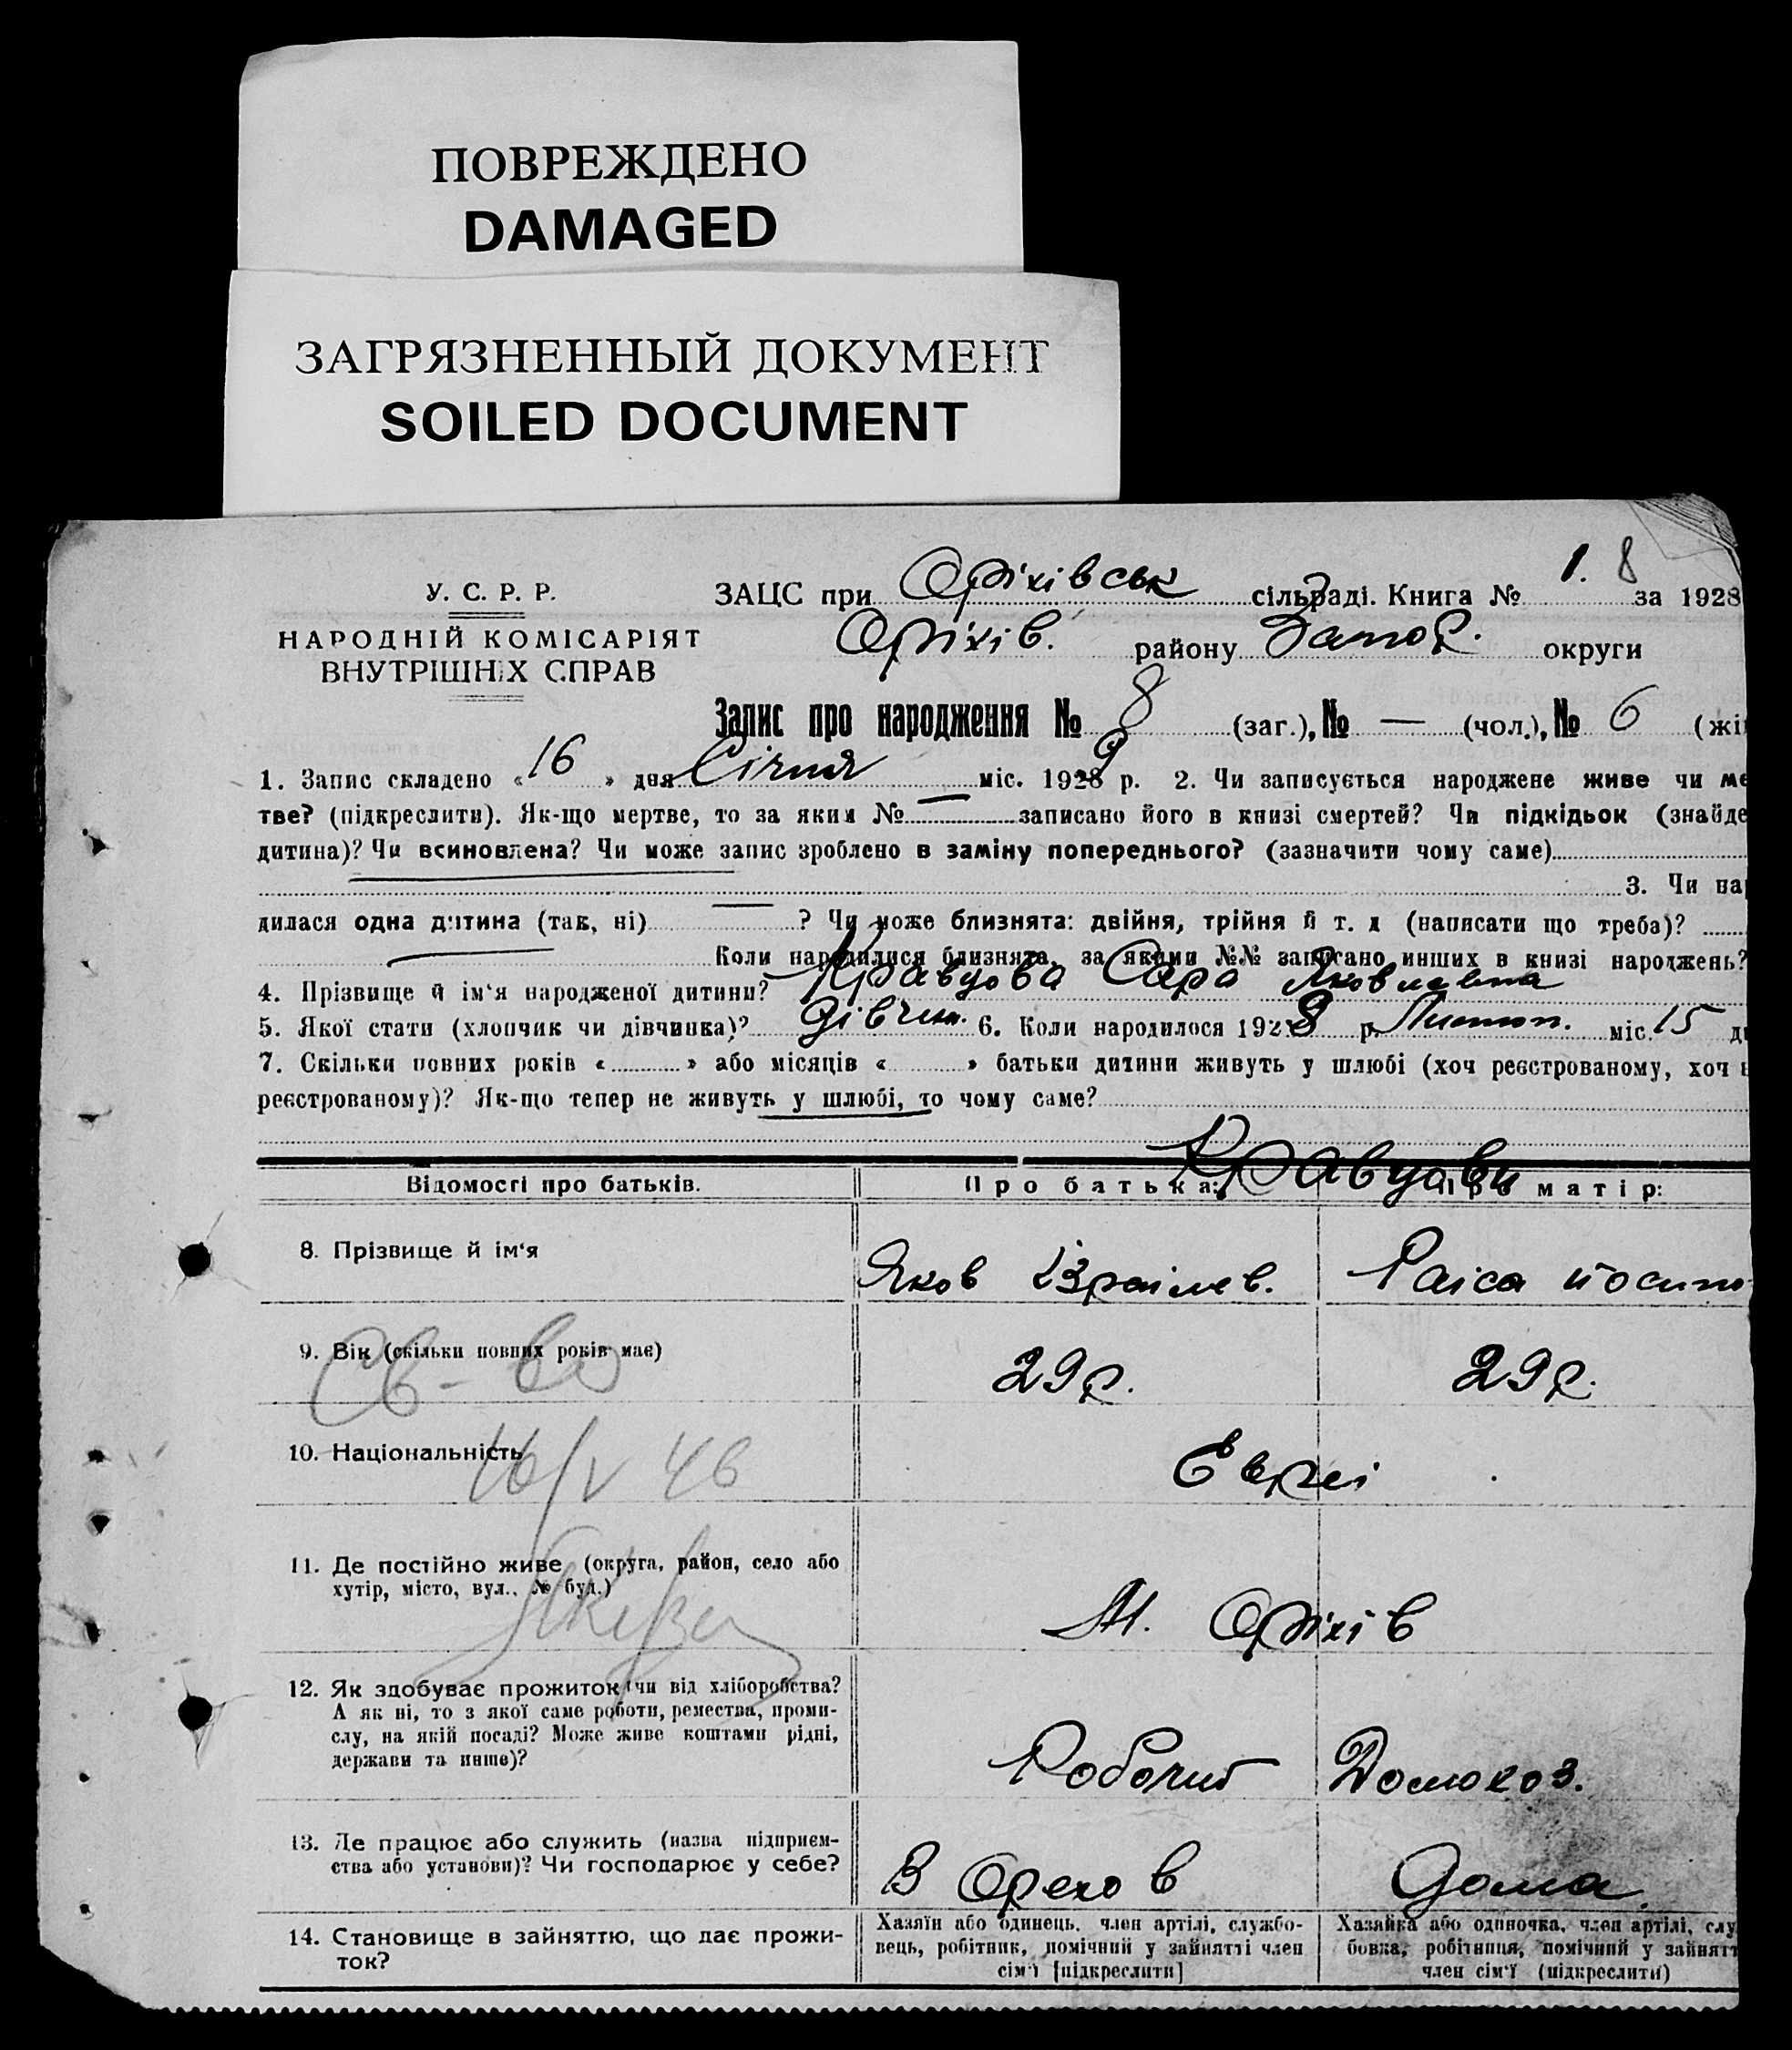 ПОВРЕЖДЕНО
DAMAGED
ЗАГРЯЗНЕННЫЙ ДОКУМЕНТ
SOILED DOCUMENT
У. С. Р. Р.
НАРОДНІЙ КОМІСАРІЯТ
ВНУТРІШНІХ СПРАВ
ЗАЦС при Оріхівськ сільраді. Книга № 1. 8 за 1928
Оріхів. району Запор. округи
Запис про народження № 8 (заг.), № — (чол.), № 6 (жі
1. Запис складено « 16 » дня Січня міс. 1929 р. 2. Чи записується народжене живе чи ме
тве? (підкреслити). Як-що мертве, то за яким № — записано його в книзі смертей? Чи підкідьок (знайде
дитина)? Чи всиновлена? Чи може запис зроблено в заміну попереднього? (зазначити чому саме)
3. Чи на
дилася одна дитина (так, ні) — ? Чи може близнята: двійня, трійня й т. д (написати що треба)?
Коли народилися близнята, за якими №№ записано инших в книзі народжень?
4. Прізвище й ім‘я народженої дитини? Кравцова Сара Яковлевна
5. Якої стати (хлопчик чи дівчинка)? Дівчин. 6. Коли народилося 1928 р. Листоп. міс. 15 д
7. Скільки повних років « » або місяців « » батьки дитини живуть у шлюбі (хоч реєстрованому, хоч н
реєстрованому)? Як-що тепер не живуть у шлюбі, то чому саме?
Кравцови
Відомості про батьків. Про батька: Про матір:
8. Прізвище й ім‘я Яков Ізраілев. Раіса Йосипо
9. Вік (скільки повних років має) 29 р. 29 р.
Св-во
10. Національність Евреі
16/V 46
11. Де постійно живе (округа, район, село або
хутір, місто, вул., № буд.)
М. Оріхів
12. Як здобуває прожиток (чи від хліборобства?
А як ні, то з якої саме роботи, ремества, проми-
слу, на якій посаді? Може живе коштами рідні,
держави та инше)?
Робочий Домохоз.
13. Де працює або служить (назва підприєм-
ства або установи)? Чи господарює у себе?
В Орехов Дома
14. Становище в зайняттю, що дає прожи-
ток?
Хазяїн або одинець, член артілі, службо-
вець, робітник, помічний у зайнятті член
сім‘ї [підкреслити]
Хазяйка або одиночка, член артілі, слу
бовка, робітниця, помічний у зайнятт
член сім‘ї (підкреслити)